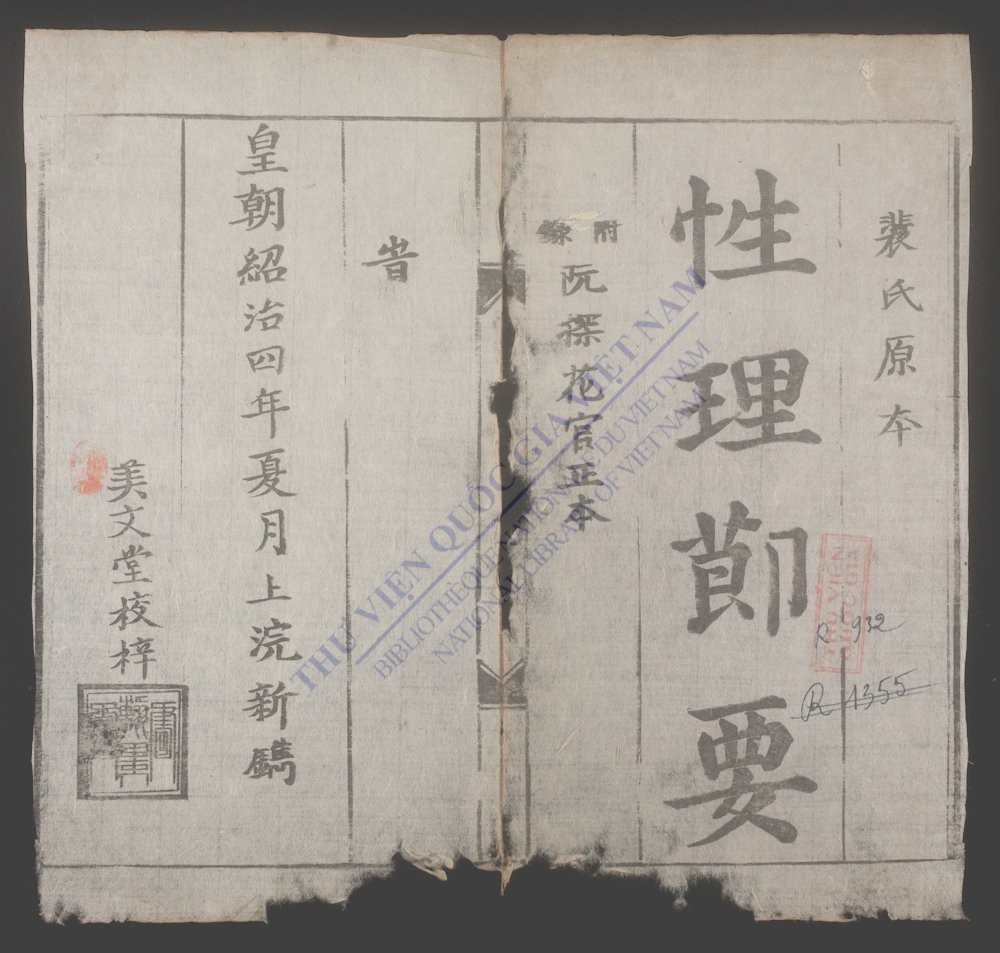 裴氏原本
性理莭要
附錄
阮探花官正本
旹
皇朝紹治四年夏月上浣新鐫
美文堂校梓
R 932
R 1355
THƯ VIỆN QUỐC GIA VIỆT NAM
BIBLIOTHÈQUE NATIONALE DU VIETNAM
NATIONAL LIBRARY OF VIETNAM